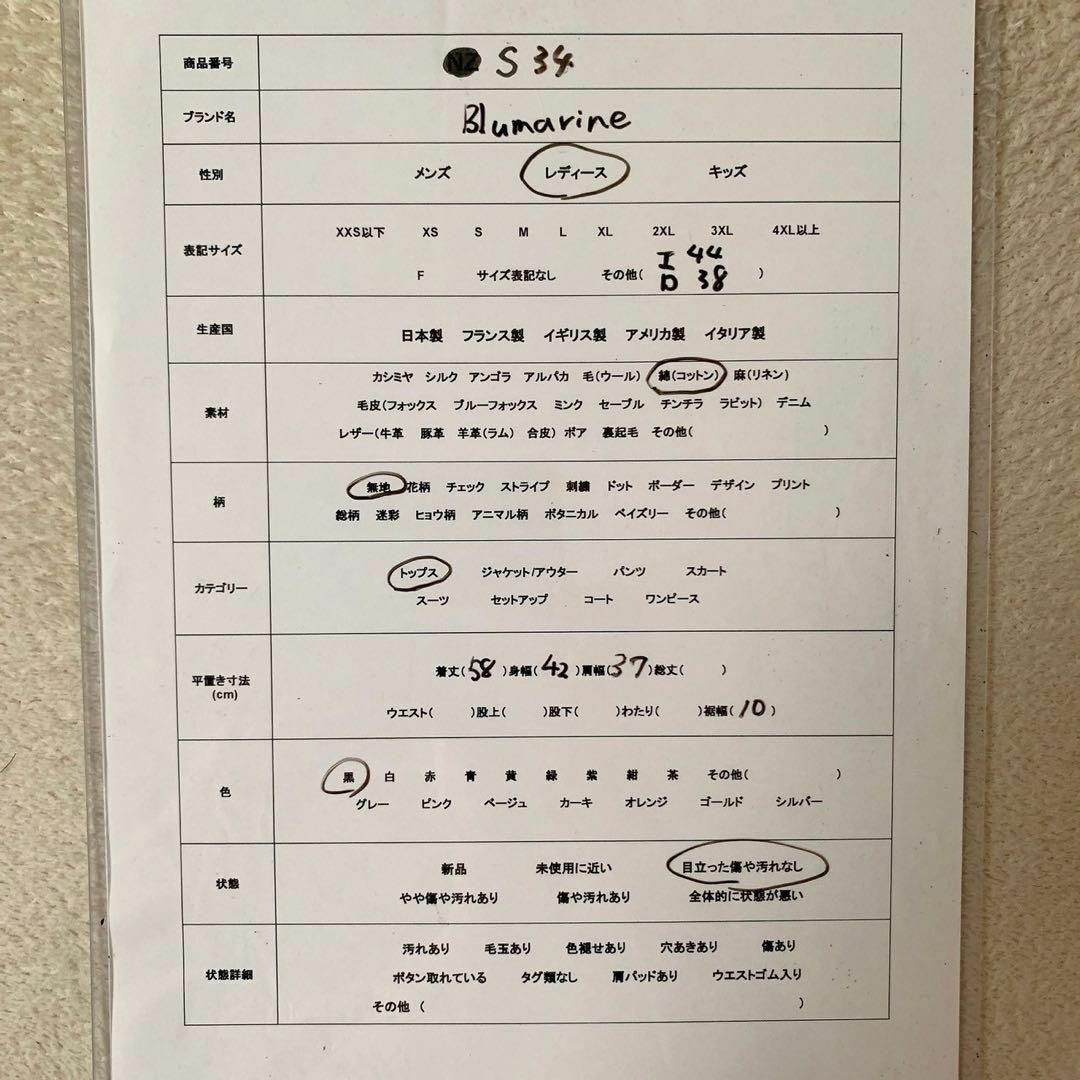 商品番号 NZ S 34
ブランド名 Blumarine
性別 メンズ レディース キッズ
XXS以下 XS S M L XL 2XL 3XL 4XL以上
表記サイズ
I 44
F サイズ表記なし その他( D 38 )
生産国 日本製 フランス製 イギリス製 アメリカ製 イタリア製
カシミヤ シルク アンゴラ アルパカ 毛(ウール) 綿(コットン) 麻(リネン)
素材 毛皮(フォックス ブルーフォックス ミンク セーブル チンチラ ラビット) デニム
レザー(牛革 豚革 羊革(ラム) 合皮) ボア 裏起毛 その他( )
柄 無地 花柄 チェック ストライプ 刺繍 ドット ボーダー デザイン プリント
総柄 迷彩 ヒョウ柄 アニマル柄 ボタニカル ペイズリー その他( )
カテゴリー トップス ジャケット/アウター パンツ スカート
スーツ セットアップ コート ワンピース
平置き寸法 着丈(58)身幅(42)肩幅(37)総丈( )
(cm) ウエスト( )股上( )股下( )わたり( )裾幅(10)
色 黒 白 赤 青 黄 緑 紫 紺 茶 その他( )
グレー ピンク ベージュ カーキ オレンジ ゴールド シルバー
状態 新品 未使用に近い 目立った傷や汚れなし
やや傷や汚れあり 傷や汚れあり 全体的に状態が悪い
汚れあり 毛玉あり 色褪せあり 穴あきあり 傷あり
状態詳細 ボタン取れている タグ類なし 肩パッドあり ウエストゴム入り
その他 ( )